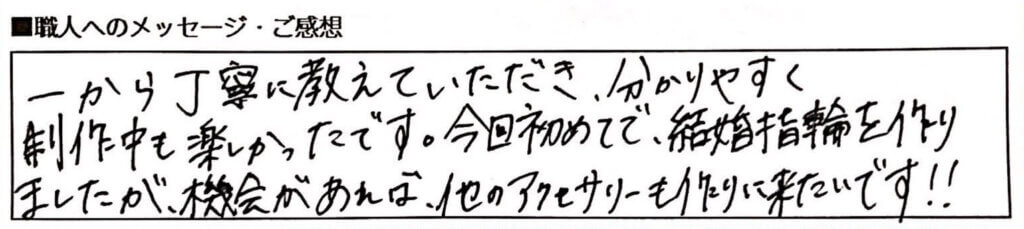 ■職人へのメッセージ・ご感想
一から丁寧に教えていただき、分かりやすく
制作中も楽しかったです。今回初めてで、結婚指輪を作り
ましたが、機会があれば、他のアクセサリーも作りに来たいです!!